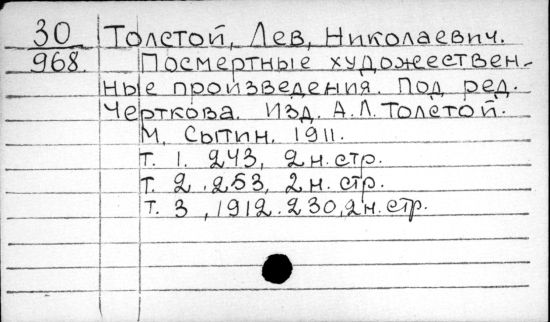 30 Толстой, Лев, Николаевич.
968. Посмертные художествен-
ные произведения. Под ред.
Черткова. Изд. А.Л.Толстой.
М, Сытин, 1911.
т. 1. 243, 2 н. стр.
т. 2. 253, 2 н. стр.
т. 3, 1912. 230, 2 н. стр.